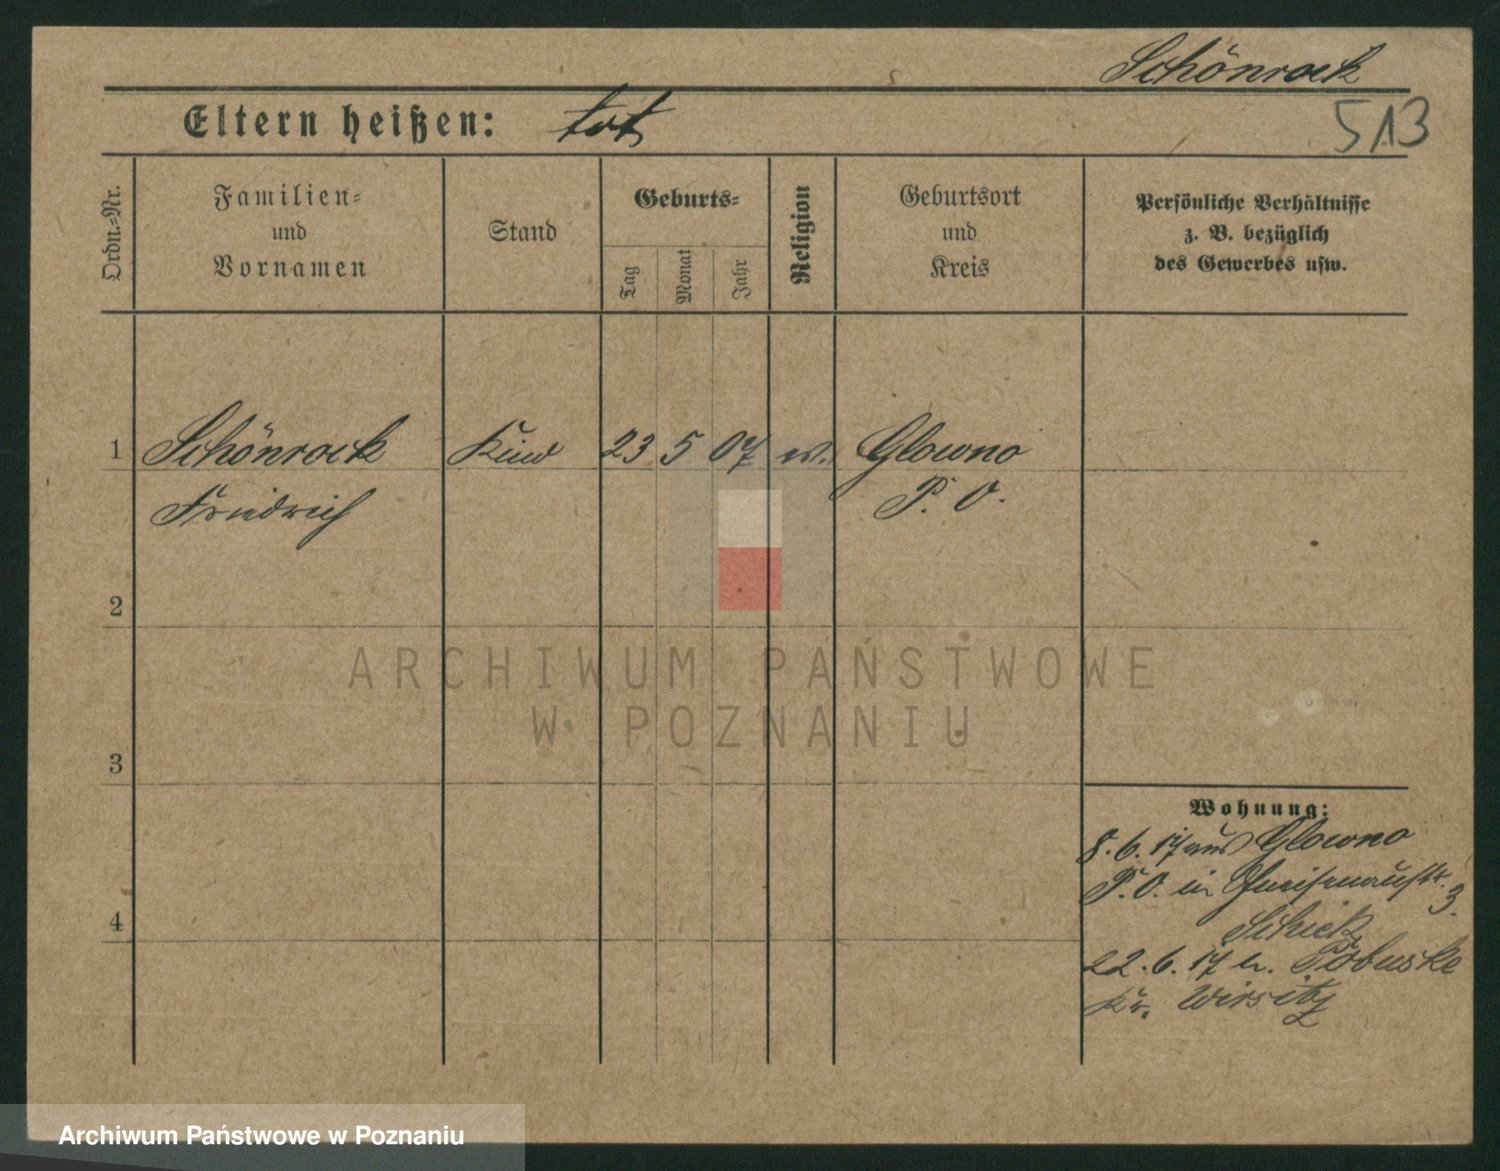 Schönrock
513
Eltern heißen: tot
Ordn.-Nr.
Familien-
und
Vornamen
Stand
Geburts-
Tag
Monat
Jahr
Religion
Geburtsort
und
Kreis
Persönliche Verhältnisse
z. B. bezüglich
des Gewerbes usw.
1 Schönrock Kind 23 5 07 ev. Glowno
Friedrich P. O.
2
3
4
Wohnung:
8. 6. 17 aus Glowno
P. O. in Gneisenaustr. 3.
Schick
22. 6. 17 n.
Kr. Wirsitz
ARCHIWUM PAŃSTWOWE
W POZNANIU
Archiwum Państwowe w Poznaniu